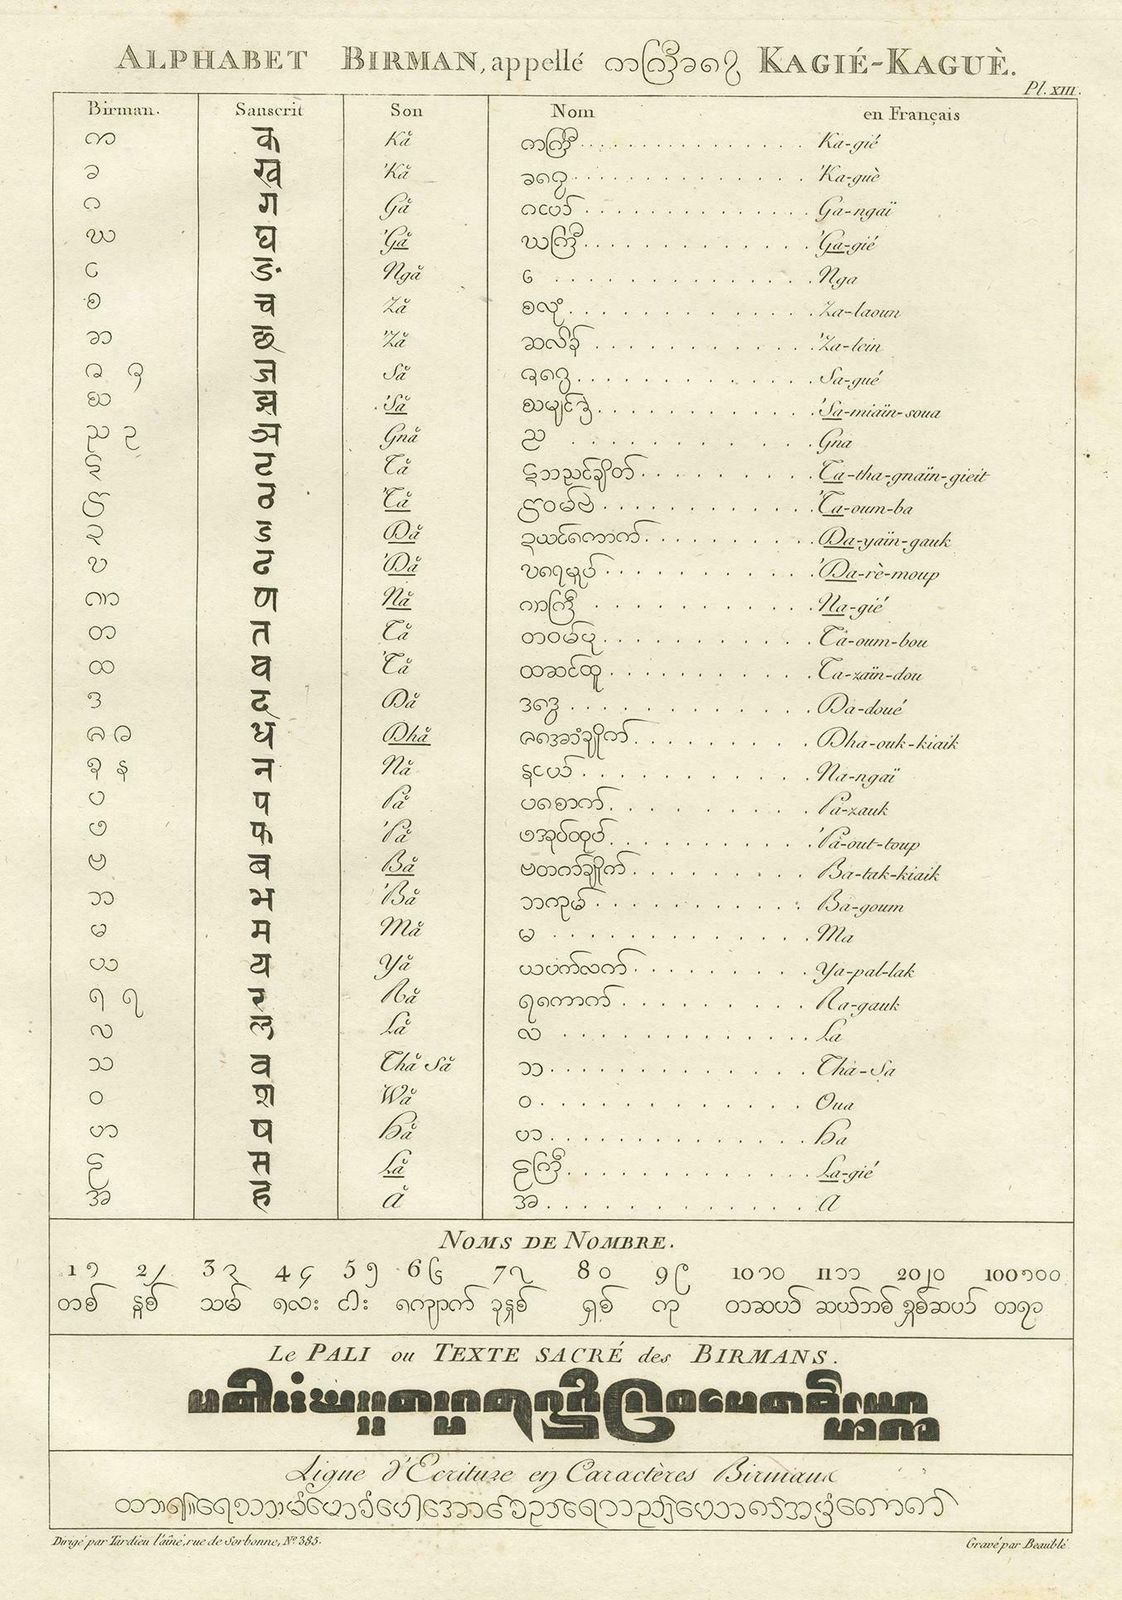 ALPHABET BIRMAN, appellé ကကြီးခခွေ KAGIÉ-KAGUÈ.
Pl. xiii.
Birman. Sanscrit Son Nom en Français
က क Kă ကကြီ Ka-gié
ခ ख 'Kă 'Ka-guè
ဂ ग Gă ဂငယ် Ga-ngaï
ဃ घ 'Gă ဃကြီ 'Ga-gié
င ङ Ngă င Nga
စ च Ză စလုံ Za-laoun
ဆ छ 'Ză ဆလိန် 'Za-lein
ဇ ज Să Sa-gué
ဈ झ 'Să 'Sa-miaïn-soua
ည ဥ ञ Gnă ည Gna
ဋ ट Tă Ta-tha-gnaïn-gieit
ဌ ठ 'Tă ဌဝမ်ဗဲ 'Ta-oum-ba
ဍ ड Dă ဍယင်ကောက် Da-yaïn-gauk
ဎ ढ 'Dă ဎရေမှုပ် 'Da-rè-moup
ဏ ण Nă ဏကြီ Na-gié
တ त Tă တဝမ်ပု Tă-oum-bou
ထ थ 'Tă ထဆင်ထူ Ta-zaïn-dou
ဒ द Dă ဒဒွေ Da-doué
ဓ ध Dhă Dha-ouk-kiaik
န न Nă နငယ် Na-ngaï
ပ प Pă ပစောက် Pă-zauk
ဖ फ 'Pă ဖအုပ်ထုပ် 'Pă-out-toup
ဗ ब Bă ဗတက်ချိုက် Ba-tak-kiaik
ဘ भ 'Bă ဘကုမ် Bă-goum
မ म Mă မ Ma
ယ य Yă ယပက်လက် Ya-pal-lak
ရ र Ră ရကောက် Ra-gauk
လ ल Lă လ La
သ व Thă Să သ Tha-Sa
ဝ श Wă ဝ Oua
ဟ ष Hă ဟ Ha
ဠ स Lă ဠကြီ La-gié
အ ह Ă အ A
NOMS DE NOMBRE.
1 ၁ 2 ၂ 3 ၃ 4 ၄ 5 ၅ 6 ၆ 7 ၇ 8 ၀ 9 ၉ 10 ၁၀ 11 ၁၁ 20 ၂၀ 100 ၁၀၀
တစ် နှစ် သမ် လေး ငါး ခုနှစ် ရှစ် ကု တဆယ် ဆယ်ဘစ် နှစ်ဆယ် တရာ
Le PALI ou TEXTE SACRÉ des BIRMANS.
Ligne d'Ecriture en Caractères Birmans
Dirigé par Tardieu l'aîné, rue de Sorbonne, N° 385. Gravé par Beaublé